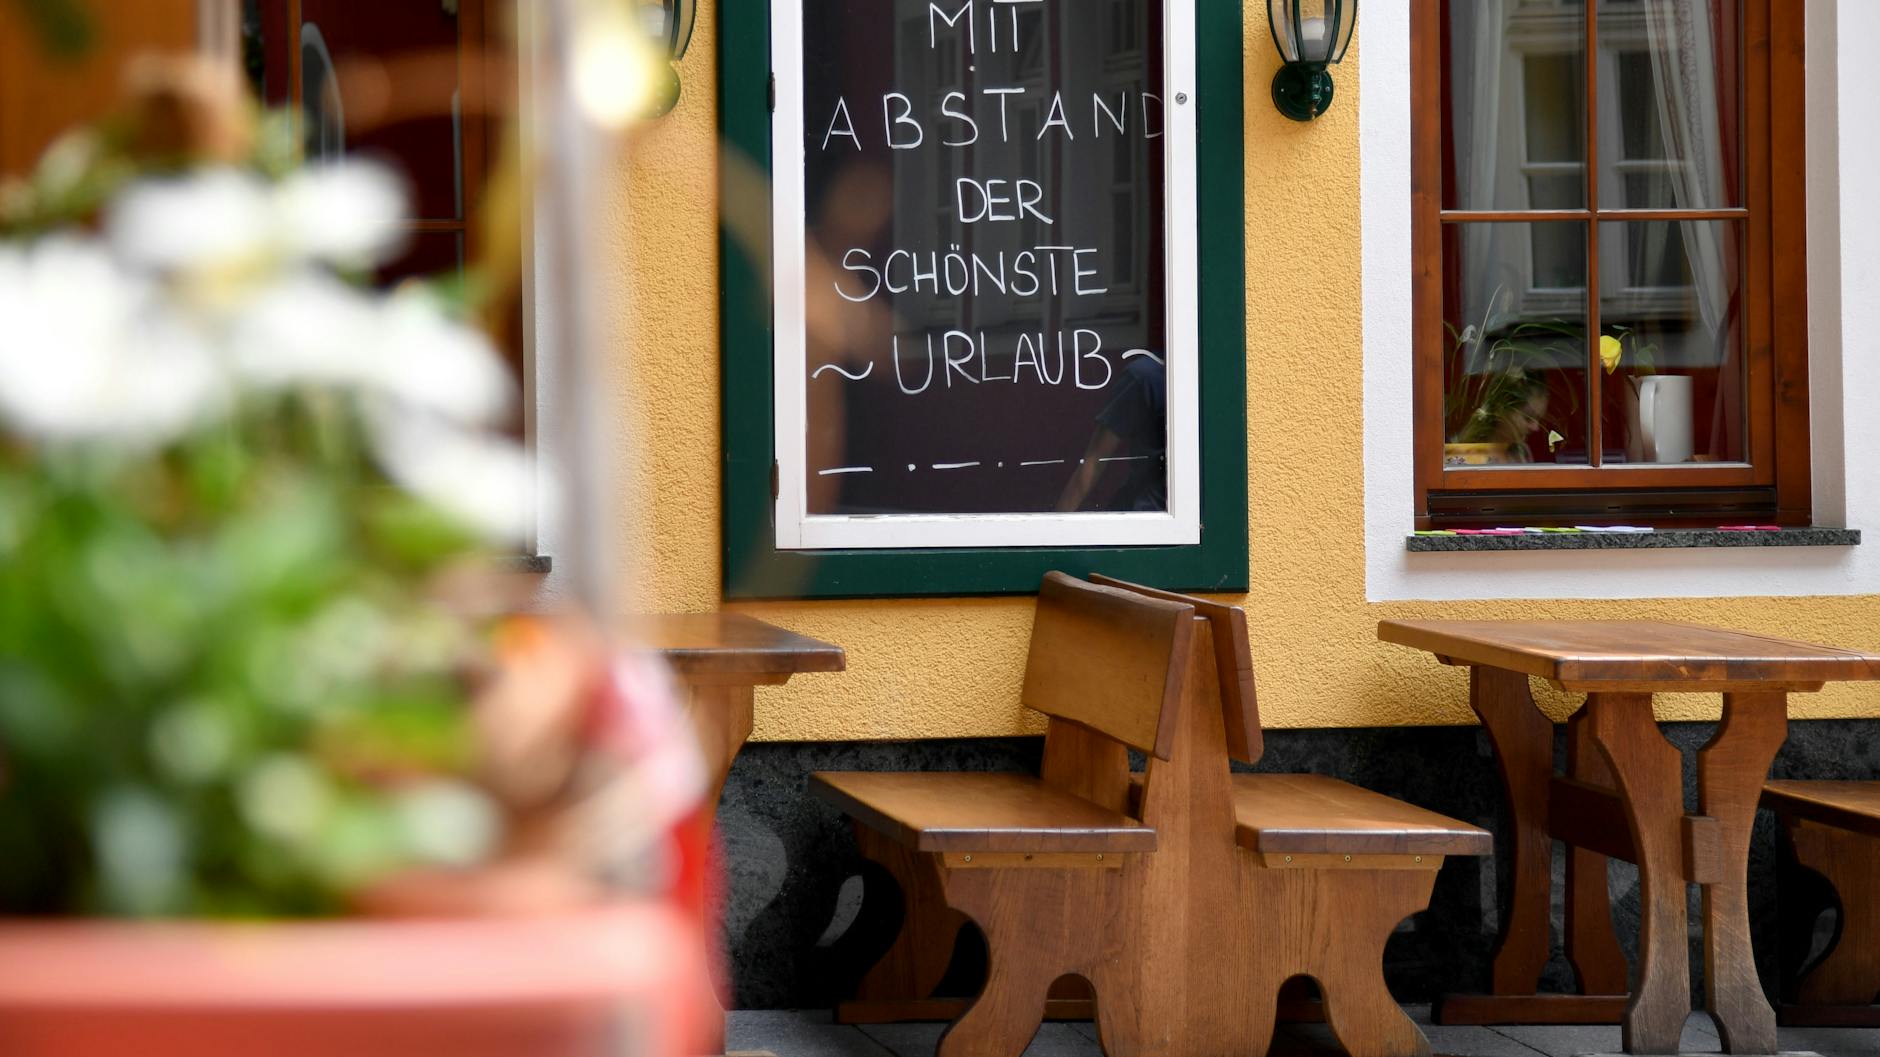 MIT
ABSTAND
DER
SCHÖNSTE
~URLAUB~